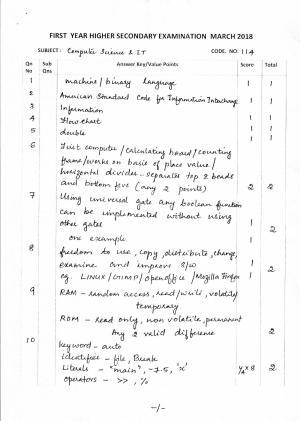 FIRST YEAR HIGHER SECONDARY EXAMINATION MARCH 2018
SUBJECT: Computer Science & IT CODE. NO: 114
Qn No Sub Qns Answer Key/Value Points Score Total
1 machine/binary language 1 1
2 American Standard Code for Information Interchange 1 1
3 Information 1 1
4 Flow chart 1 1
5 double 1 1
6 First computer/calculating board/counting
frame/works on basis of place value/
horizontal divider - separates top 2 beads
and bottom five (any 2 points) 2 2
7 Using universal gate any boolean function
can be implemented without using 1
other gates 2
one example 1
8 freedom to use, copy, distribute, change,
examine and improve s/w 1
eg. LINUX/GIMP/openoffice/Mozilla Firefox 1 2
9 RAM - random access, read/write, volatile/
temporary
ROM - read only, non volatile, permanent
Any 2 valid difference 2
10 keyword - auto
identifier - file, Break
Literals - "main", -7.5, 'x' ¼ x 8 2
operators - >>, %
-1-